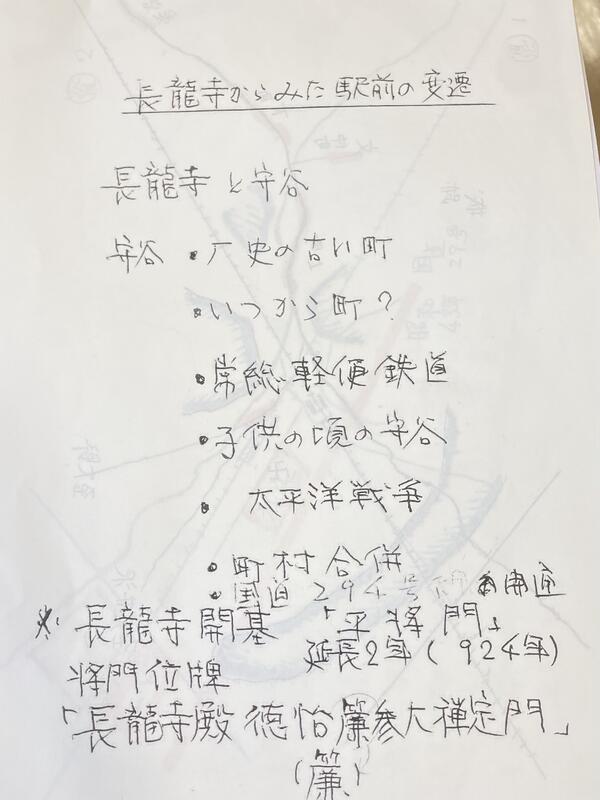 長龍寺からみた駅前の変遷
長龍寺と守谷
守谷 ・厂史の古い町
・いつから町?
・常総軽便鉄道
・子供の頃の守谷
・太平洋戦争
・町村合併
・国道294号 の開通
※ 長龍寺開基 「平将門」
延長2年(924年)
将門位牌
「長龍寺殿徳怡簾参大禅定門」
(簾)